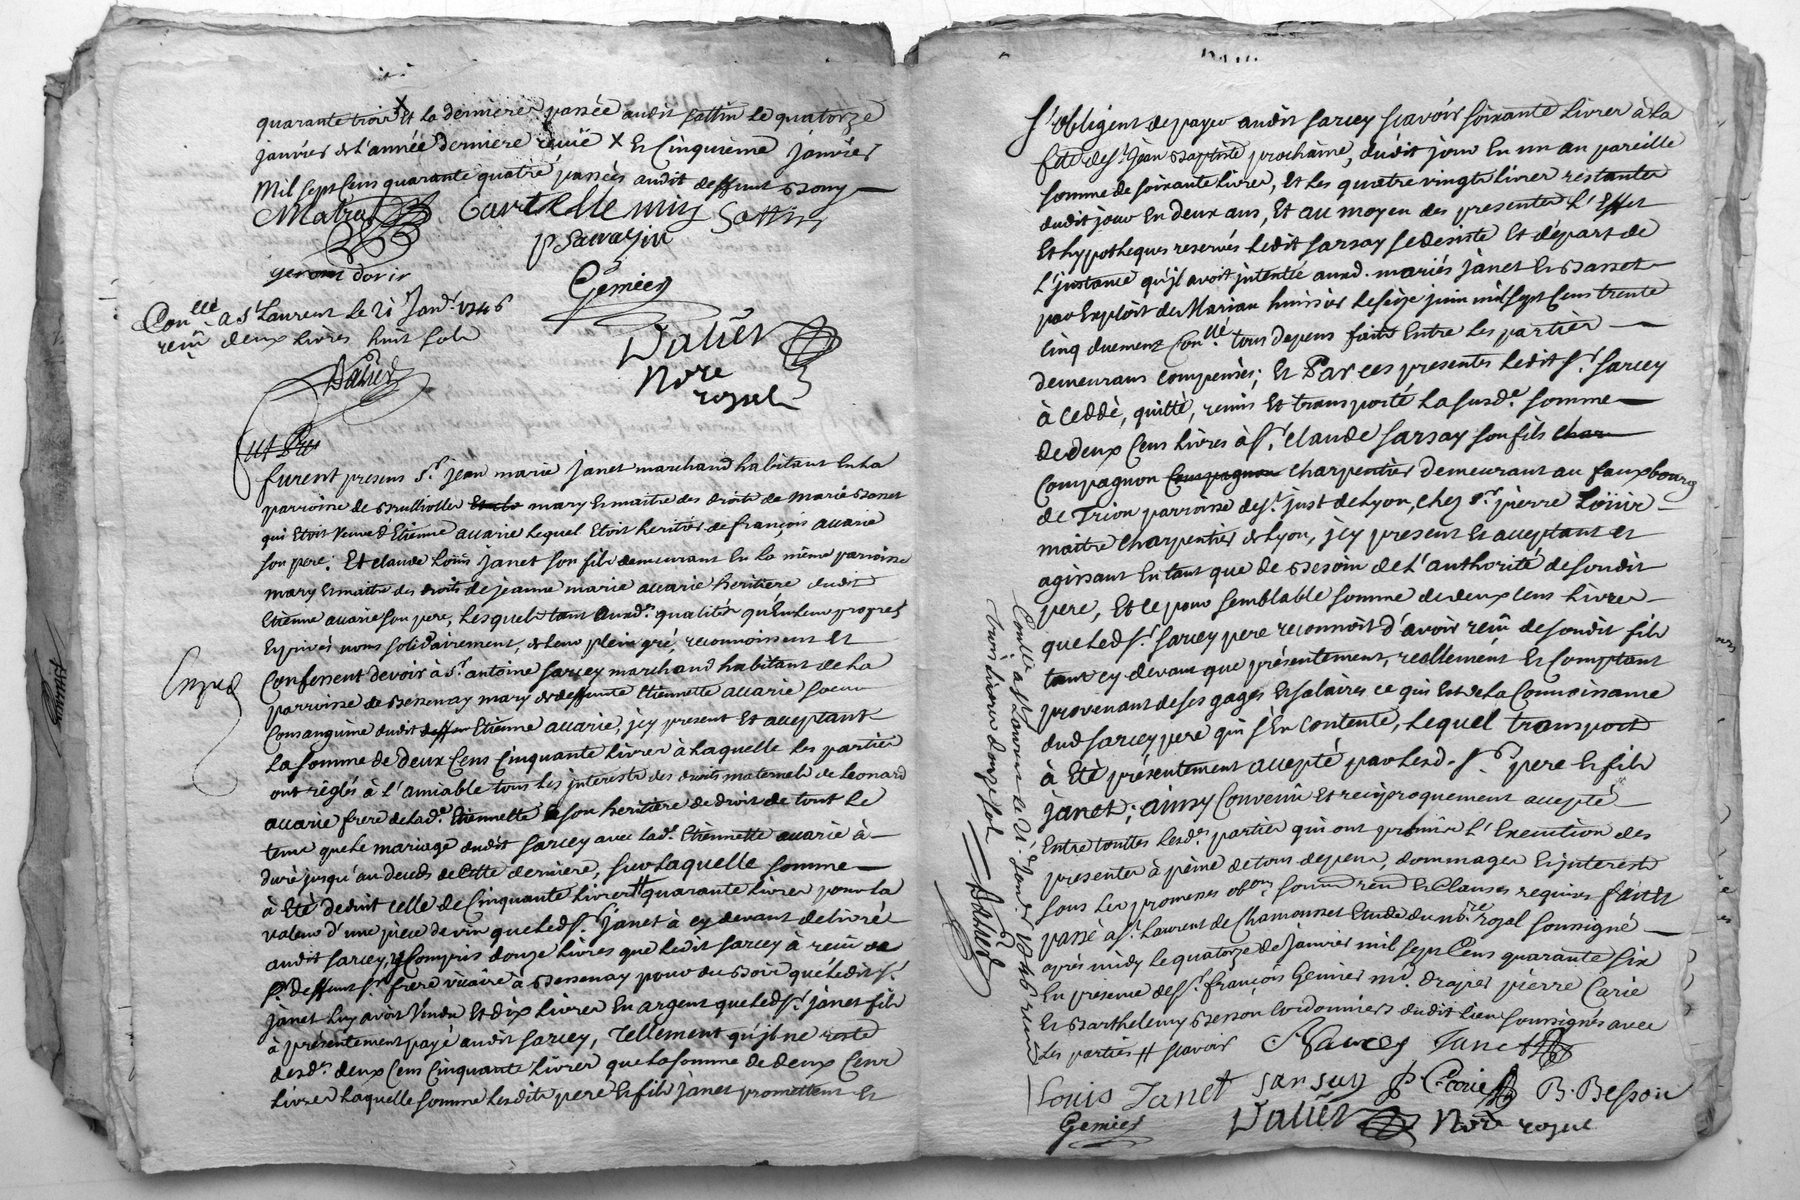 quarante trois X et la derniere passée audit sattin le quatorze
janvier de l'année derniere reçuë X et Cinquieme janvier
mil sept Cens quarante quatre passées audit deffunt
Matra Barthellemy Sattin
p Savazin
Gemier
Con.llé a S.t Laurent le 21 Janv.r 1746
reçu deux livres huit sols
Valier
Valier
No.re
royal
furent presens S.r jean marie janet marchand habitant en la
parroisse de brullioles mary et maitre des droits de marie basset
qui Etoit veuve d'Etienne avarie lequel Etoit heritier de françois avarie
son pere; Et claude Loüis janet son fils demeurant en la même parroisse
mary et maitre des droits de jeanne marie avarie heritiere dudit
Etienne avarie son pere, lesquels tant auxd.s qualités qu'En leurs propres
Et privés noms solidairement, de leur plein gré, reconnoissent et
Confessent devoir à S.r antoine sarsey marchand habitant de la
parroisse de bessenay mary de deffunte Etiennette avarie soeur
Consanguine dudit Etienne avarie, jcy present Et acceptant
la somme de deux Cens Cinquante livres à laquelle les parties
ont réglés à l'amiable tous les jnterests des droits maternels de Leonard
avarie frere de lad.e Etiennette son heritiere de droit de tout le
tems que le mariage dudit sarcey avec lad.e Etiennette avarie à
duré jusqu'au deceds de Cette derniere, sur laquelle somme
à Eté deduit celle de Cinquante livres # quarante livres pour la
valeur d'une piece de vin que led.S.r janet à cy devant délivré
audit sarcey, y Compris douze livres que ledit sarcey à reçu de
S.r deffunt S.r frere vicaire à bessenay pour du bois que ledit S.r
janet luy avoit vendu Et dix livres En argent que led S.r janet fils
à présentement payé audit sarcey, Tellement qu'il ne reste
desd.s deux Cens Cinquante livres que la somme de deux Cens
livres laquelle somme lesdits pere Et fils janet promettent Et
S'obligent de payer audit sarcey sçavoir soixante livres à la
fête de S.t jean Baptiste prochaine, dudit jour En un an pareille
somme de soixante livres, Et les quatre vingts livres restantes
dudit jour En deux ans, Et au moyen des presentes l'Effet
Et hypotheques reservés ledit sarsay se desiste Et départ de
l'jnstance qu'jl avoit jntentée auxd. mariés janet Et basset
par Exploit de Marian huissier le seize juin mil sept Cens trente
cinq duement Con.llé tous depens faits Entre les parties
demeurans compensés; Et Par ces presentes ledit S.r sarcey
à ceddé, quitté, remis Et transporté la susd.e somme
de deux Cens livres à S.r claude sarsay son fils char
Compagnon Compagnon charpentier demeurant au fauxbourg
de Trion parroisse de S.t just de Lyon, chez S.r pierre Loüis
maitre charpentier de Lyon, jcy present Et acceptant et
agissant En tant que de besoin de l'authorité de sondit
pere, Et ce pour semblable somme de deux Cens livres
que led S.r sarcey pere reconnoit d'avoir reçu de sondit fils
tant cy devant que présentement, reellement Et Comptant
provenant de ses gages Et salaires ce qui Est de la Connoissance
dud sarcey pere qui s'En Contente, lequel transport
à Eté présentement accepté par lesd. S.rs pere Et fils
janet; ainsy Convenu Et reciproquement accepté
Entre touttes lesd.es parties qui ont promis l'Execution des
presentes à peine de tous depens, dommages Et jnterests
sous les promesses soum rend Et Clauses requises faites
passé a S.t Laurent de Chamousset Etude du no.re royal soussigné
après midy le quatorze de janvier mil sept Cens quarante six
En presence de S.r françois Gemier m.d drapier pierre Carie
Et Barthelemy Besson Cordonnier dudit lieu soussignés avec
les parties # sçavoir Sarcey Janet
Louis Janet sarsay P Carie B. Besson
Gemier Valier Nore royal
Con.llé a S.t Laurent le 21 Janv.r 1746 reçu
trois livres douze sols
Valier